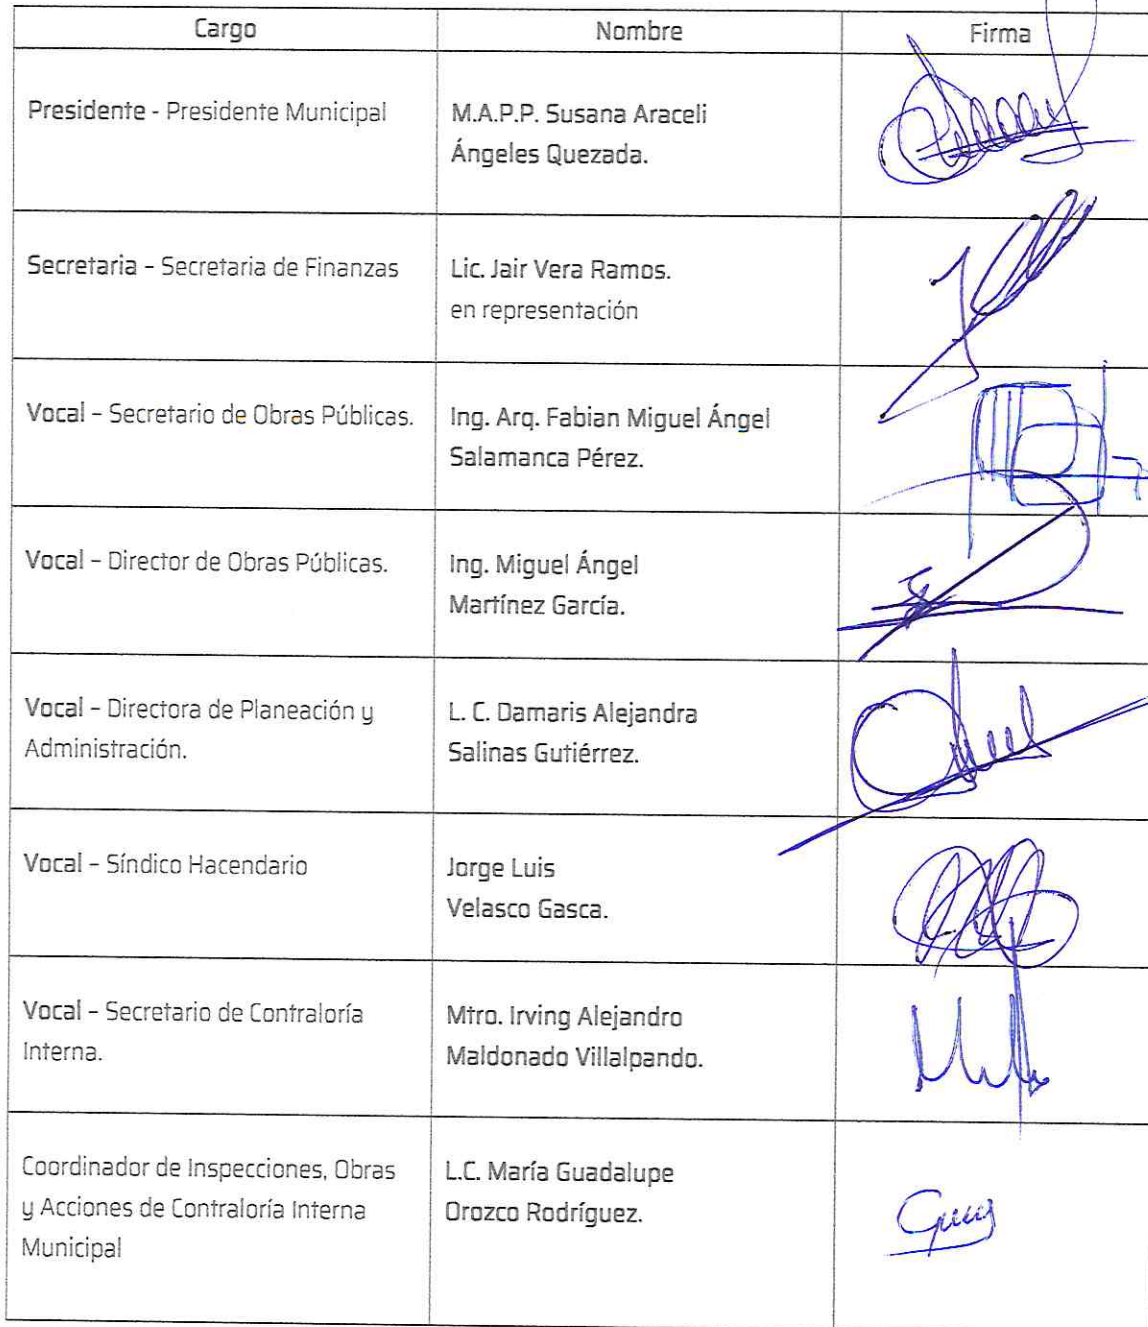 Cargo
Nombre
Firma
Presidente - Presidente Municipal
M.A.P.P. Susana Araceli
Ángeles Quezada.
Secretaria – Secretaria de Finanzas
Lic. Jair Vera Ramos.
en representación
Vocal – Secretario de Obras Públicas.
Ing. Arq. Fabian Miguel Ángel
Salamanca Pérez.
Vocal – Director de Obras Públicas.
Ing. Miguel Ángel
Martínez García.
Vocal – Directora de Planeación y
Administración.
L. C. Damaris Alejandra
Salinas Gutiérrez.
Vocal – Síndico Hacendario
Jorge Luis
Velasco Gasca.
Vocal – Secretario de Contraloría
Interna.
Mtro. Irving Alejandro
Maldonado Villalpando.
Coordinador de Inspecciones, Obras
y Acciones de Contraloría Interna
Municipal
L.C. María Guadalupe
Orozco Rodríguez.